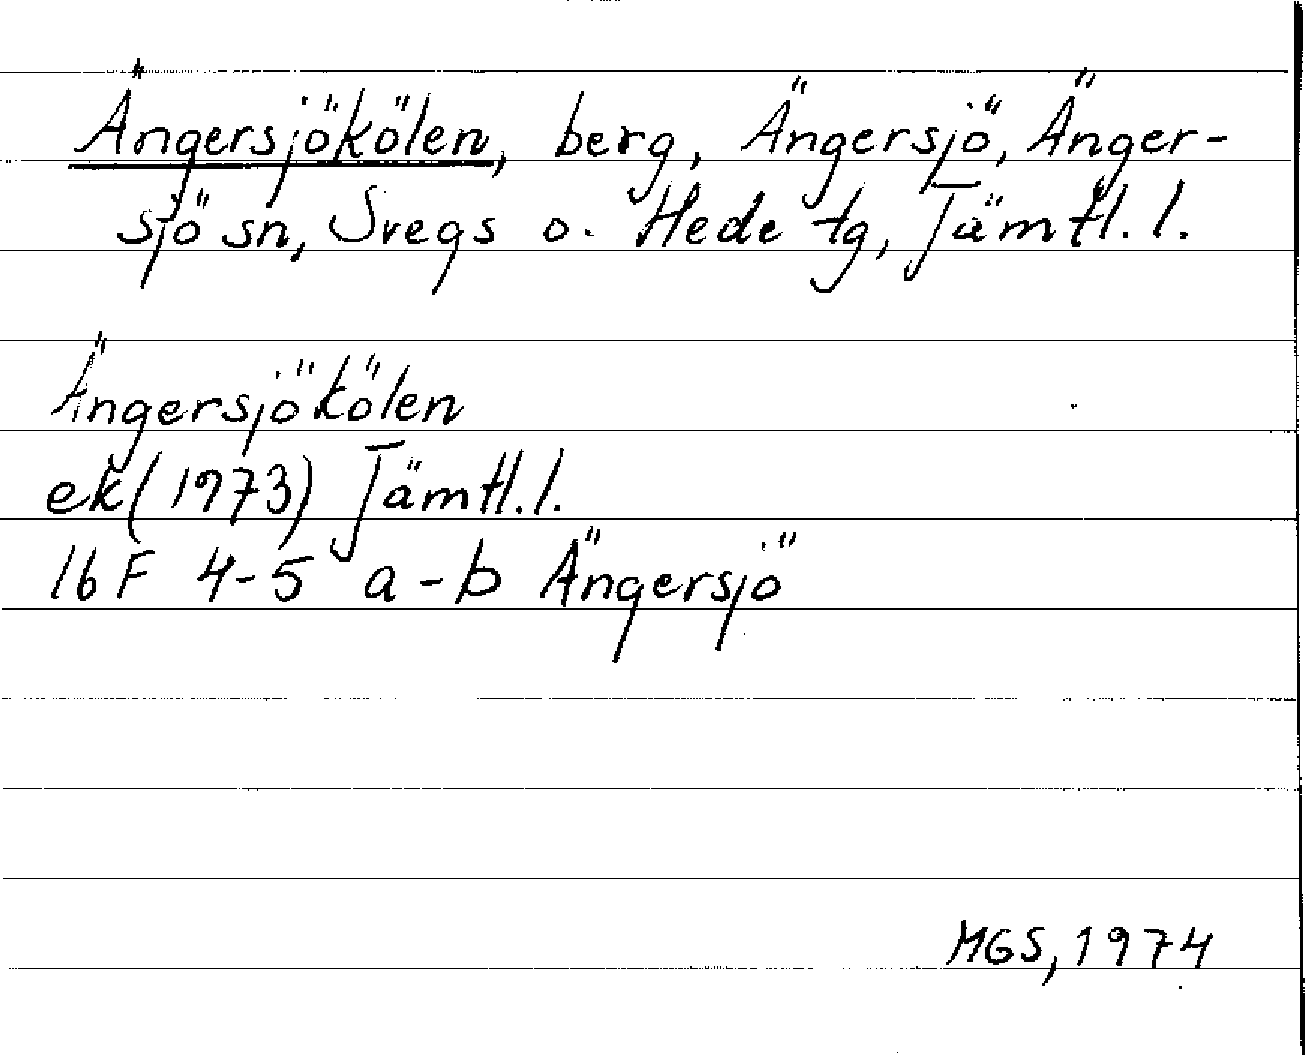 Ängersjökölen, berg, Ängersjö, Änger-
sjö sn, Svegs o. Hede tg, Jämtl. l.
Ängersjökölen
ek (1973) Jämtl. l.
16F 4-5 a-b Ängersjö
MGS, 1974